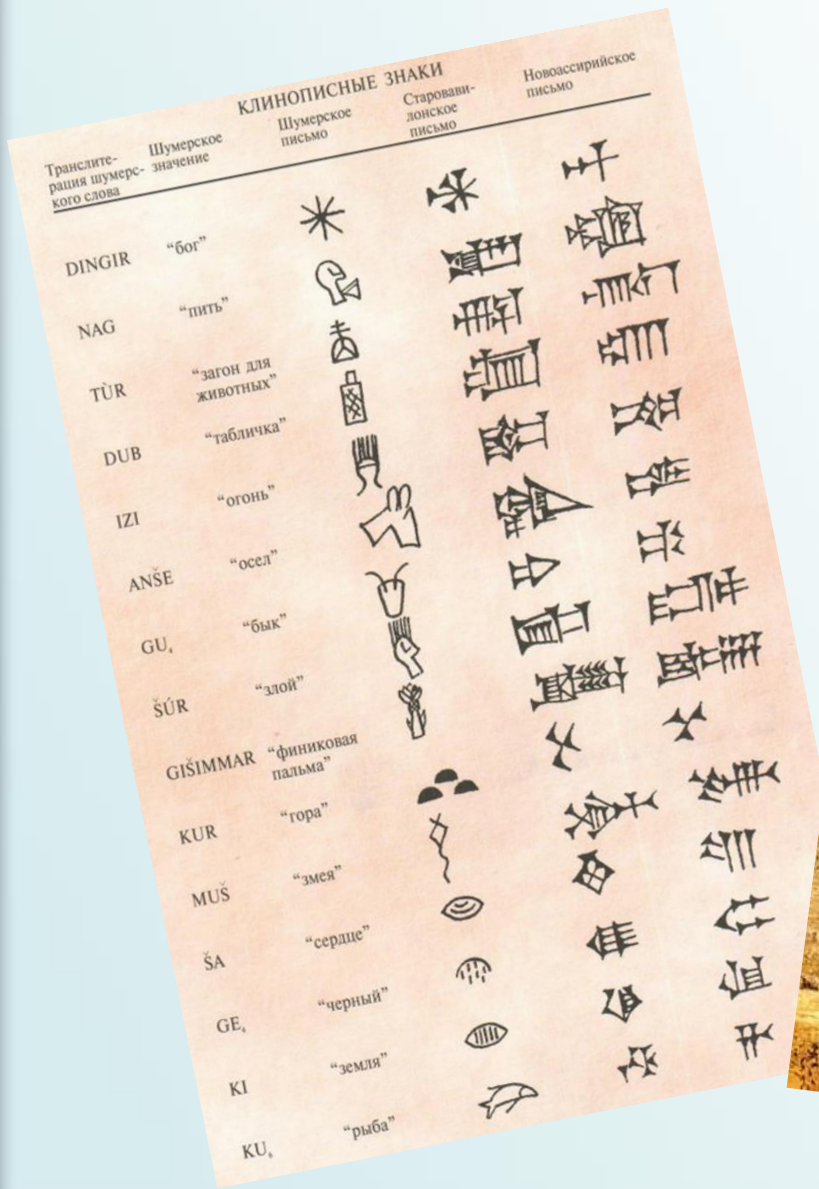 КЛИНОПИСНЫЕ ЗНАКИ
Транслите-
рация шумерс-
кого слова
Шумерское
значение
Шумерское
письмо
Старовави-
лонское
письмо
Новоассирийское
письмо
DINGIR “бог”
NAG “пить”
TÙR “загон для
животных”
DUB “табличка”
IZI “огонь”
ANŠE “осел”
GU₄ “бык”
ŠÚR “злой”
GIŠIMMAR “финиковая
пальма”
KUR “гора”
MUŠ “змея”
ŠA “сердце”
GE₆ “черный”
KI “земля”
KU₆ “рыба”